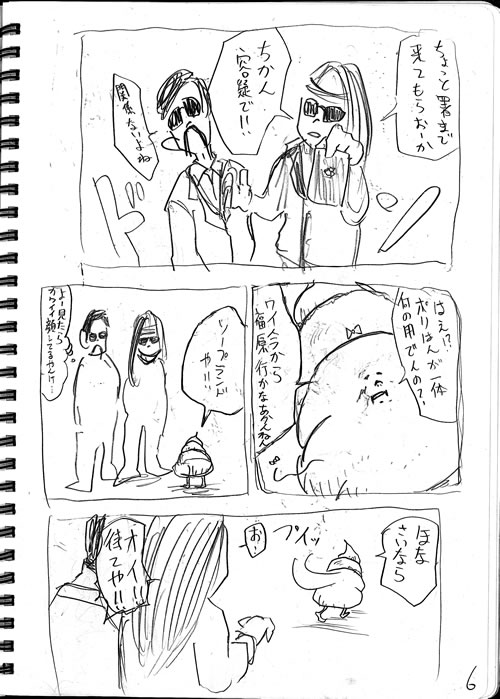 ちょっと署まで
来てもらおーか
ちかん
容疑で!!
関係ないよね
ドン
はぇ!?
ポリはんが一体
何の用でんの?
ワイ今から
福原行かなあかんねん
ソープランド
やけ!!
よー見たら
カワイイ顔してるやんけ…
ほな
さいなら
プイッ
お!
オイ!!
待てや!!
6